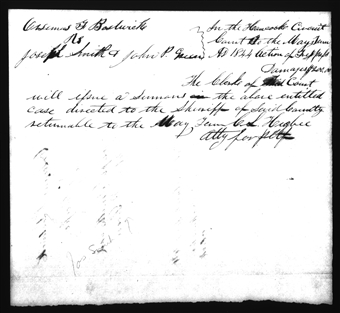 Orsemus F Bostwick
vs
Joseph Smith & John P. Green
In the Hancock Circuit
Court to the May Term
AD 1844 Action of
Damages
The Clerk of Said Court
will issue a Summons in the above entitled
case directed to the Sheriff of Said County
returnable to the May Term C L Higbee
Atty for Plff